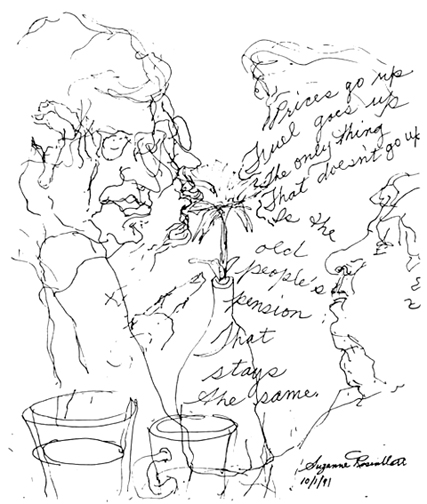 Prices go up
Fuel goes up
The only thing
That doesn't go up
Is the
old
people's
pension
that
stays
the same.
Suzanne
10/1/91